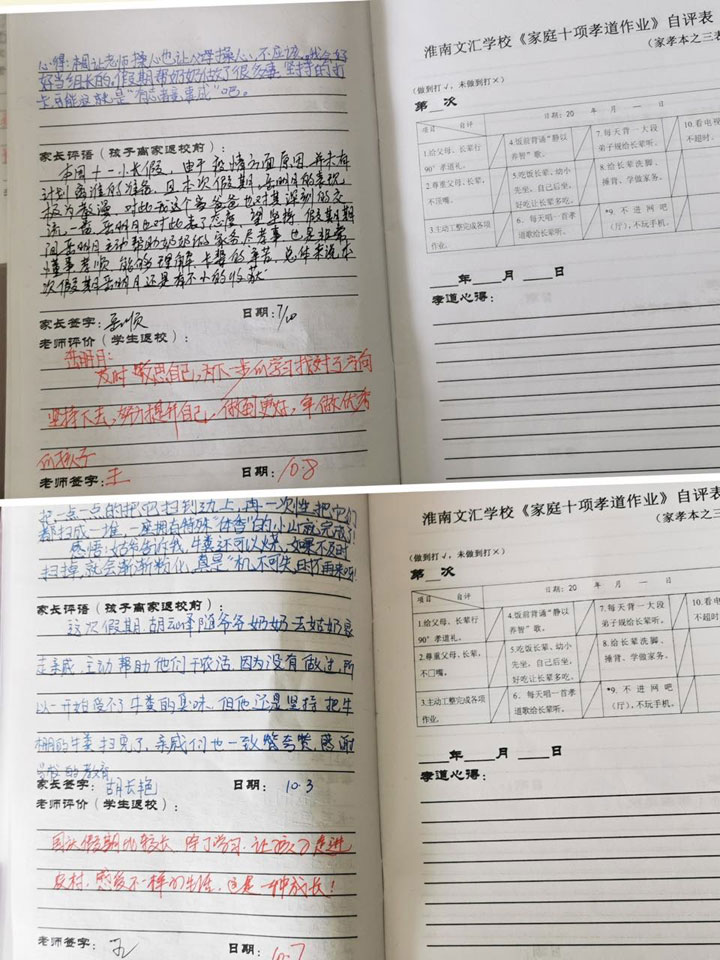 心情相让老师操心也让父母操心,不应该。我会好
好当组长的,假期帮奶奶做了很多事,坚持的打
卡可能这就是“有志者竟事成”吧。
家长评语(孩子离家返校前):
本周十一小长假,由于疫情方面原因,并未有
计划离淮的准备,且本次假期,岳明月的表现
较为散漫,对此我这个当爸爸也对其深刻的交
流,岳明月也对此表了态度,望坚持,假期期
间岳明月主动帮助奶奶做家务尽孝事,也是非常
懂事孝顺,能够理解长辈的辛苦,总体来说,本
次假期岳明月还是有不小的收获
家长签字:岳顺 日期:7/10
老师评价(学生返校):
岳明月:
及时反思自己,为下一步的学习找好了方向
坚持下去,努力提升自己,做到更好,争做优秀
的孩子
老师签字:王 日期:10.8
淮南文汇学校《家庭十项孝道作业》自评表
(家孝本之三表
(做到打√,未做到打×)
第__次
项目 自评 日期:20 年 月 — 日
1.给父母、长辈行90°孝道礼。 4.饭前背诵“静以养智”歌。 7.每天背一大段弟子规给长辈听。 10.看电视不超时。
2.尊重父母、长辈,不顶嘴。 5.吃饭长辈、幼小先坐,自己后坐,好吃让长辈多吃。 8.给长辈洗脚、捶背,学做家务。
3.主动工整完成各项作业。 6.每天唱一首孝道歌给长辈听。 *9.不进网吧(厅),不玩手机。
___年___月___日
孝道心得:
把一点一点的把它扫到边上,再一次性把它们
都扫成一堆,一座拥有特殊“体香”的小山就完成了!
感悟:姑爷告诉我,牛粪还可以烧,如果不及时
扫掉,就会渐渐粉化,真是“机不可失,时不再来呀!
家长评语(孩子离家返校前):
这次假期,胡云泽随爷爷奶奶去姑奶家
走亲戚,主动帮助他们干农活,因为没有做过,所
以一开始受不了牛粪的臭味,但他还是坚持把牛
棚的牛粪扫完了,亲戚们也一致赞夸赞,感谢
学校的教育
家长签字:胡长艳 日期:10.3
老师评价(学生返校):
国庆假期比较长,除了学习,让孩子走进
农村,感受不一样的生活,这是一种成长!
老师签字:孔 日期:10.7
淮南文汇学校《家庭十项孝道作业》自评表
(家孝本之三
(做到打√,未做到打×)
第__次
项目 自评 日期:20 年 月 — 日
1.给父母、长辈行90°孝道礼。 4.饭前背诵“静以养智”歌。 7.每天背一大段弟子规给长辈听。 10.看电视不超时。
2.尊重父母、长辈,不顶嘴。 5.吃饭长辈、幼小先坐,自己后坐,好吃让长辈多吃。 8.给长辈洗脚、捶背,学做家务。
3.主动工整完成各项作业。 6.每天唱一首孝道歌给长辈听。 *9.不进网吧(厅),不玩手机。
___年___月___日
孝道心得: